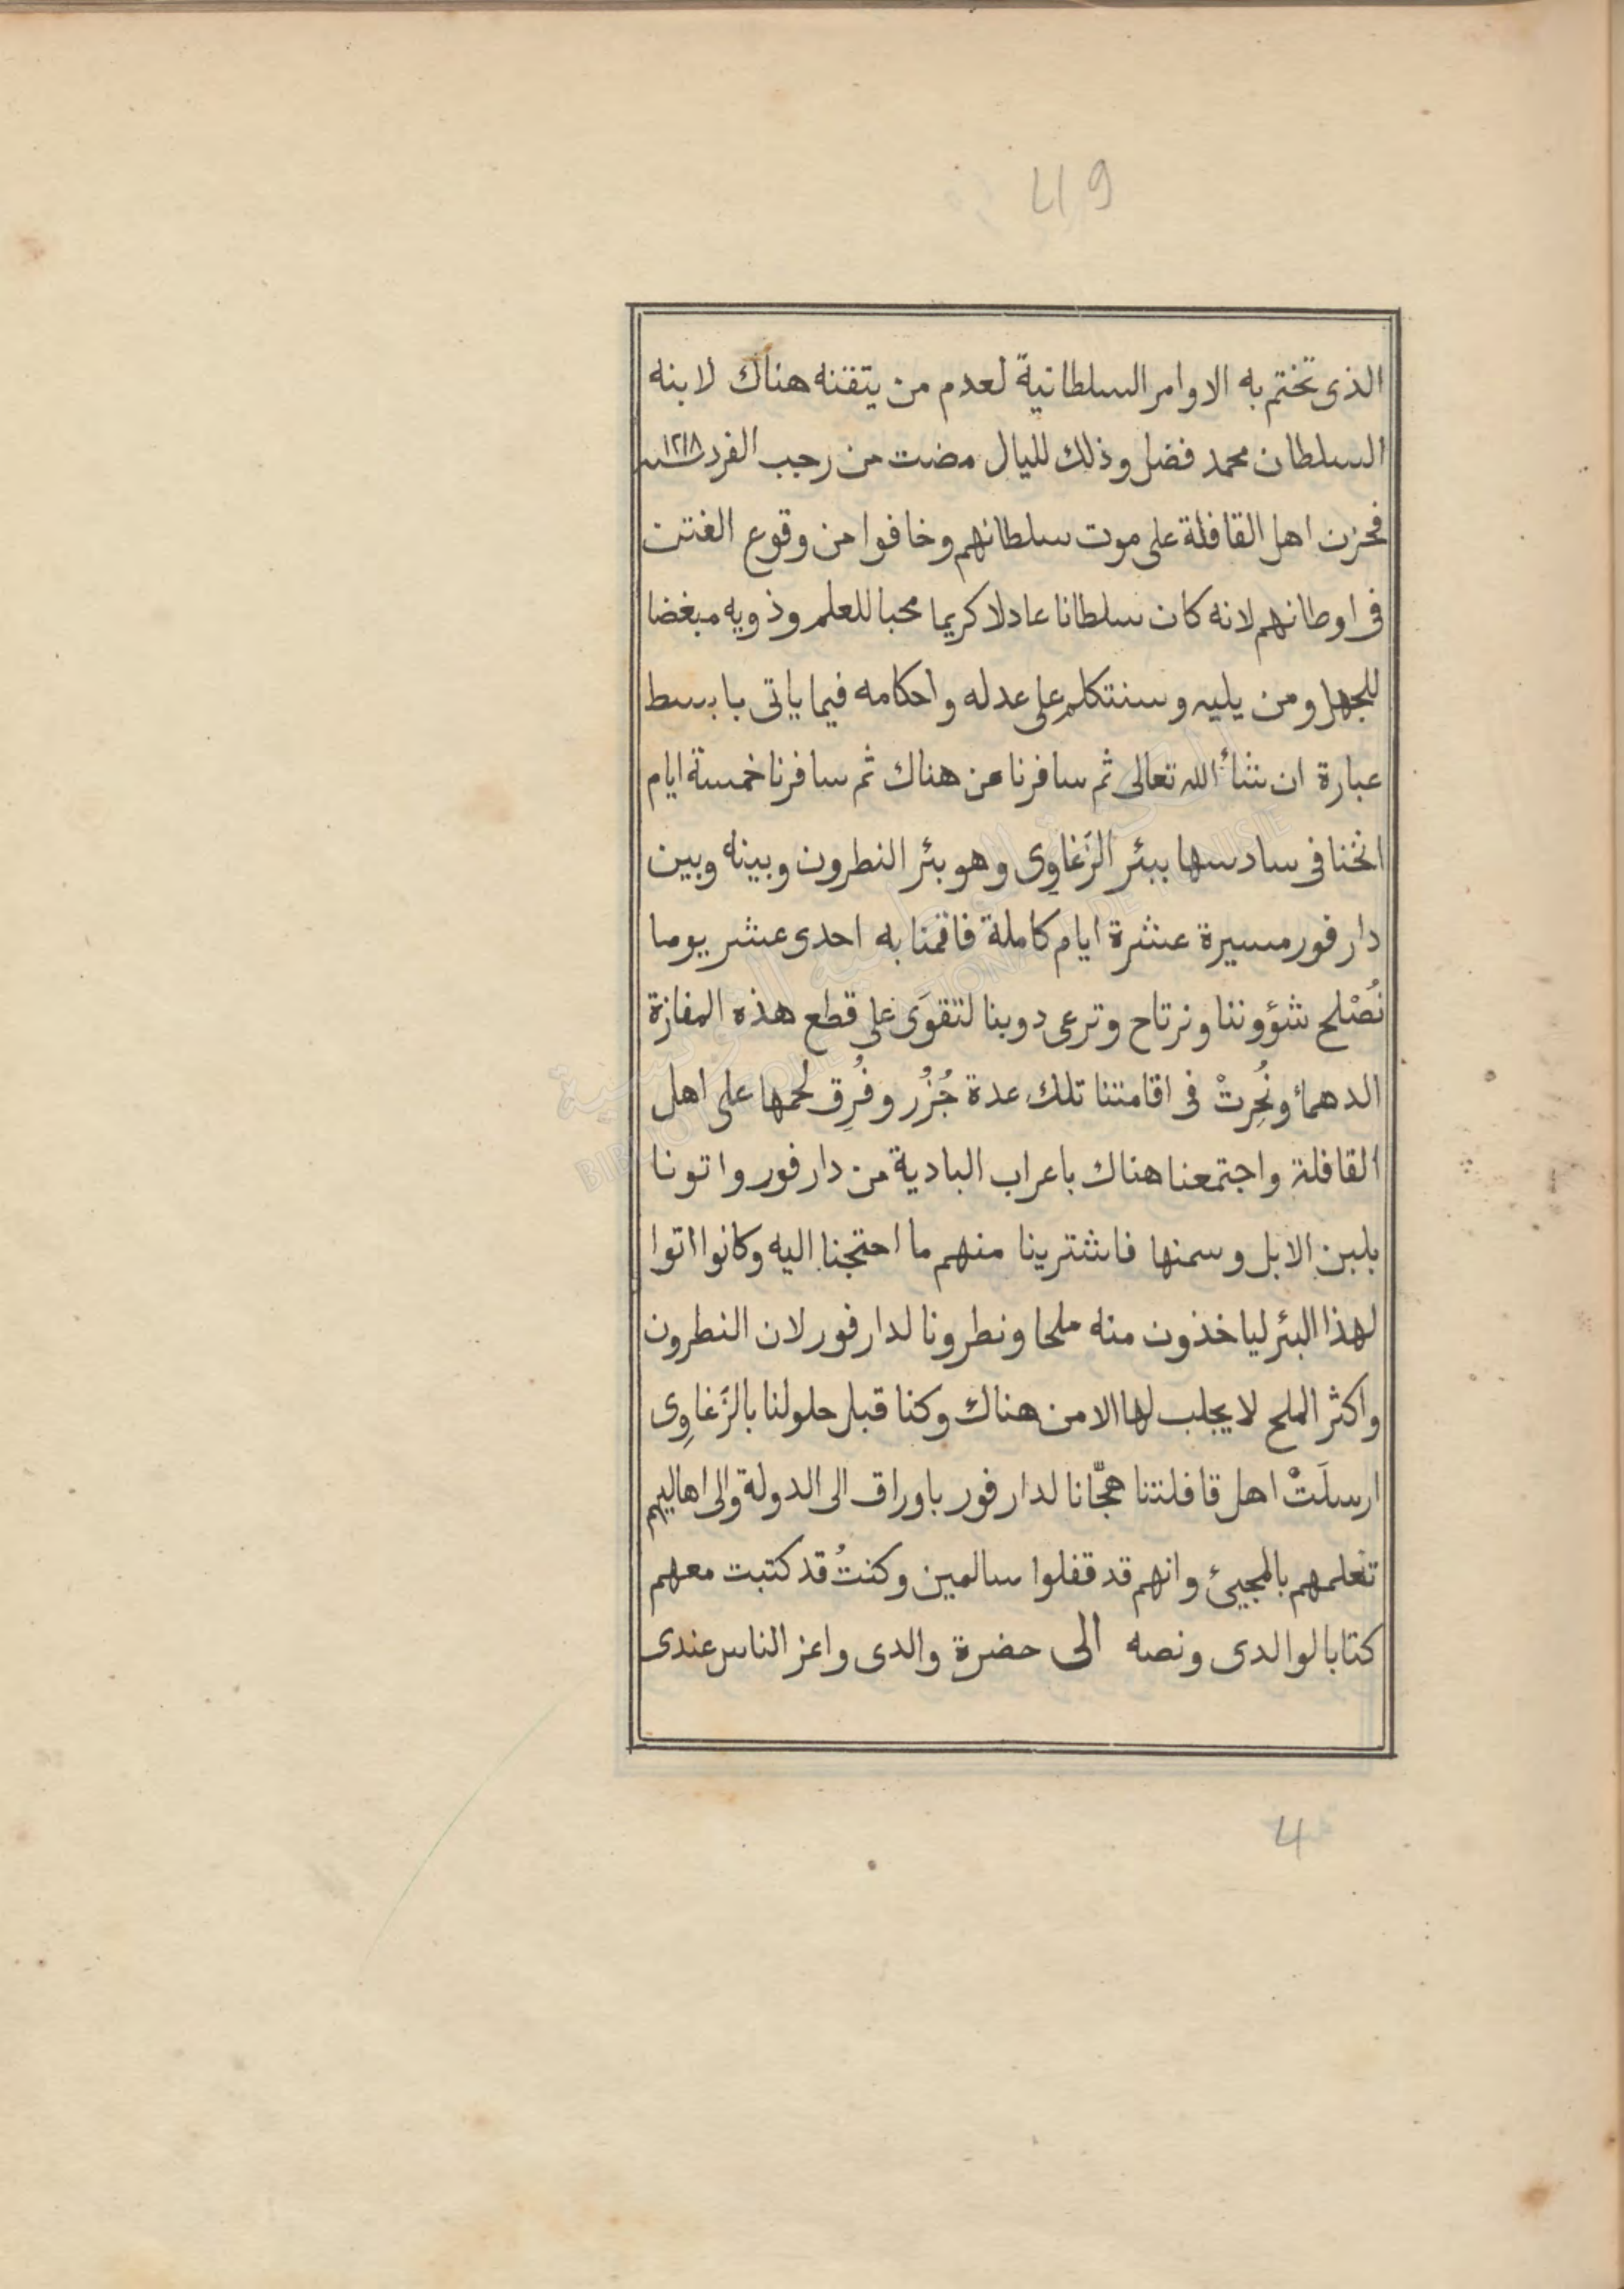 49
الذى تختم به الاوامر السلطانية لعدم من يتقنه هناك لابنه
السلطان محمد فضل وذلك لليال مضت من رجب الفرد سنة ١٢١٨
فحزن اهل القافلة على موت سلطانهم وخافوا من وقوع الفتن
فى اوطانهم لانه كان سلطانا عادلا كريما محبا للعلم وذويه مبغضا
للجهل ومن يليه وسنتكلم على عدله واحكامه فيما ياتى بابسط
عبارة ان شأ الله تعالى ثم سافرنا من هناك ثم سافرنا خمسة ايام
انخنا فى سادسها ببئر الزَغاوِى وهو بئر النطرون وبينه وبين
دارفور مسيرة عشرة ايام كاملة فاقمنا به احدى عشر يوما
نُصْلح شؤوننا ونرتاح وترعى دوبنا لتقوَى على قطع هذه المفازة
الدهمأ ونُحِرتْ فى اقامتنا تلك عدة جُزُر وفُرِق لحمها على اهل
القافلة واجتمعنا هناك باعراب البادية من دارفور واتونا
بلبن الابل وسمنها فاشترينا منهم ما احتجنا اليه وكانوا اتوا
لهذا البئر لياخذون منه ملحا ونطرونا لدارفور لان النطرون
واكثر الملح لا يجلب لها الا من هناك وكنا قبل حلولنا بالزَغاوِى
ارسلَتْ اهل قافلتنا هجّانا لدارفور باوراق الى الدولة والى اهاليهم
تعلمهم بالمجيئ وانهم قد قفلوا سالمين وكنتُ قد كتبت معهم
كتابا لوالدى ونصه الى حضرة والدى واعز الناس عندى
4